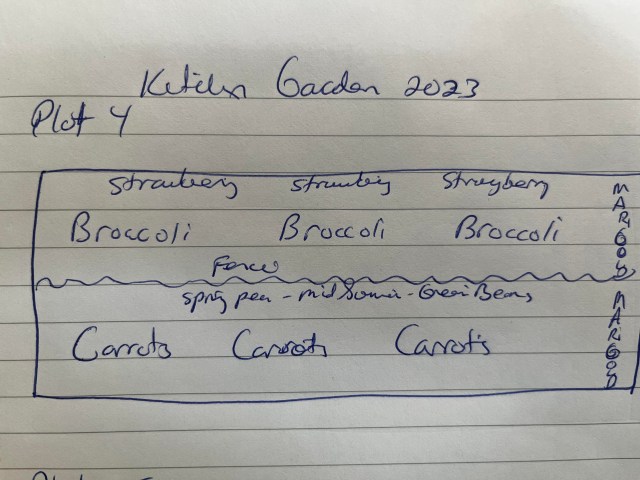 Kitchen Garden 2023
Plot 4
Strawberry strawberry Strawberry
Broccoli Broccoli Broccoli
Fence
spring pea - mid Summer - Green Beans
Carrots Carrots Carrots
MARIGOLD
MARIGOLD